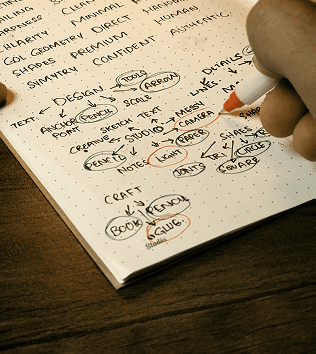 CLEAN MINIMAL HANDMADE
SHARPNESS
CLARITY MINIMAL HUMAN
GOL GEOMETRY DIRECT
SHAPES PREMIUM AUTHENTIC.
SYMMTRY CONFIDENT
TOOLS DETAILS
DESIGN ARROW LINES
SCALE
TEXT PENCIL
ANCHOR POINT SKETCH TEXT MESSY
CREATIVE STUDIO CAMERA
PENCIL PAPER SHAPES
NOTES LIGHT CIRCLE
TRI SQUARE
CRAFT
PENCIL
BOOK
GLUE.
Studio